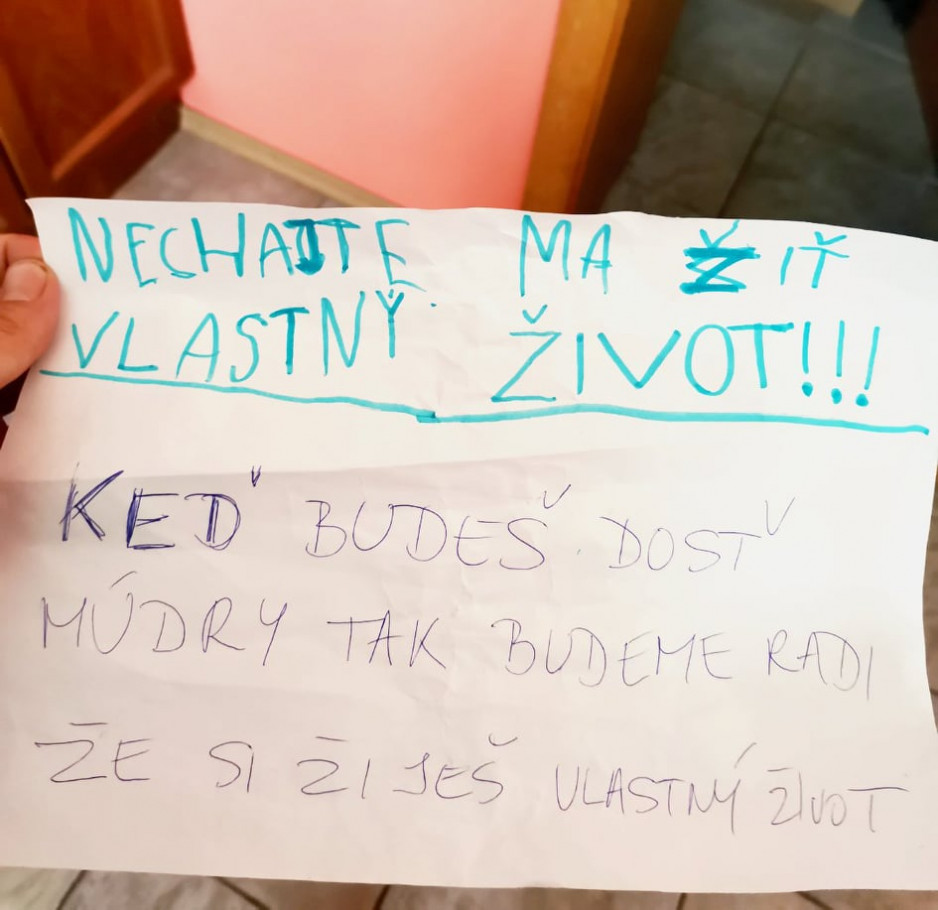 NECHAJTE MA ŽIŤ
VLASTNÝ ŽIVOT!!!
KEĎ BUDEŠ DOSŤ
MÚDRY TAK BUDEME RADI
ŽE SI ŽIJEŠ VLASTNÝ ŽIVOT